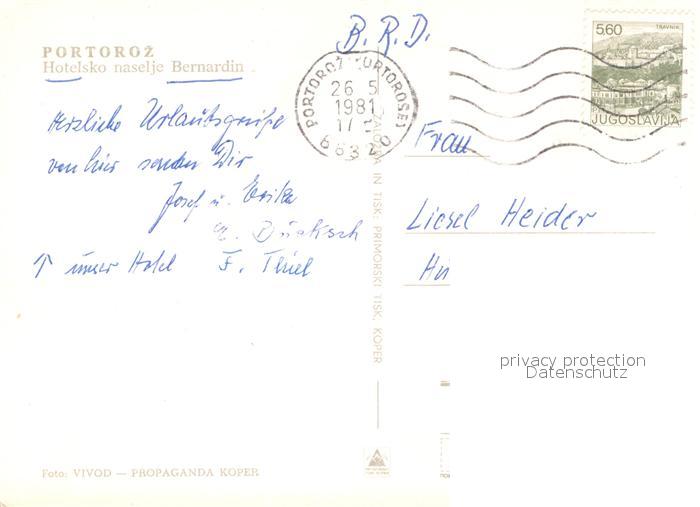 B.R.D.
PORTOROŽ
Hotelsko naselje Bernardin
Herzliche Urlaubsgrüße
von hier senden Dir
Josef u. Erika
↑ unser Hotel F. Thiel
Foto: VIVOD — PROPAGANDA KOPER
ZALOŽBA IN TISK: PRIMORSKI TISK, KOPER
PORTOROŽ (PORTOROSE)
26 5
1981
17
66320
5,60
TRAVNIK
JUGOSLAVIJA
Frau
Liesel Heider
privacy protection
Datenschutz